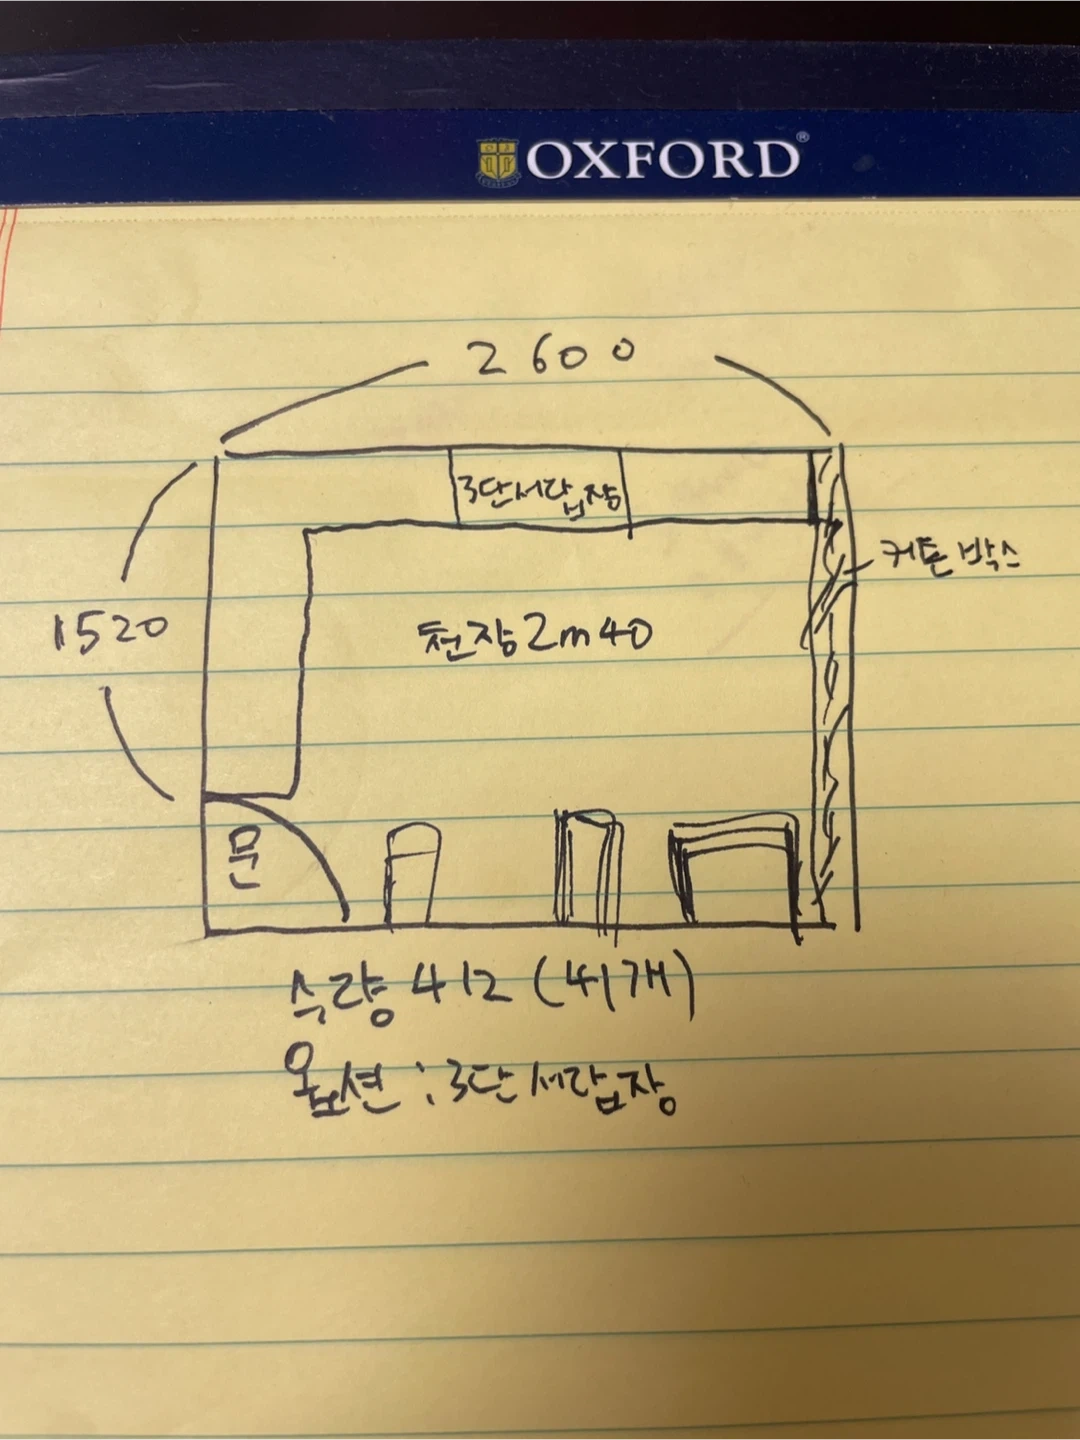 OXFORD®
2600
3단서랍장
커튼박스
1520
천장2m40
문
수량412 (41개)
옵션:3단서랍장